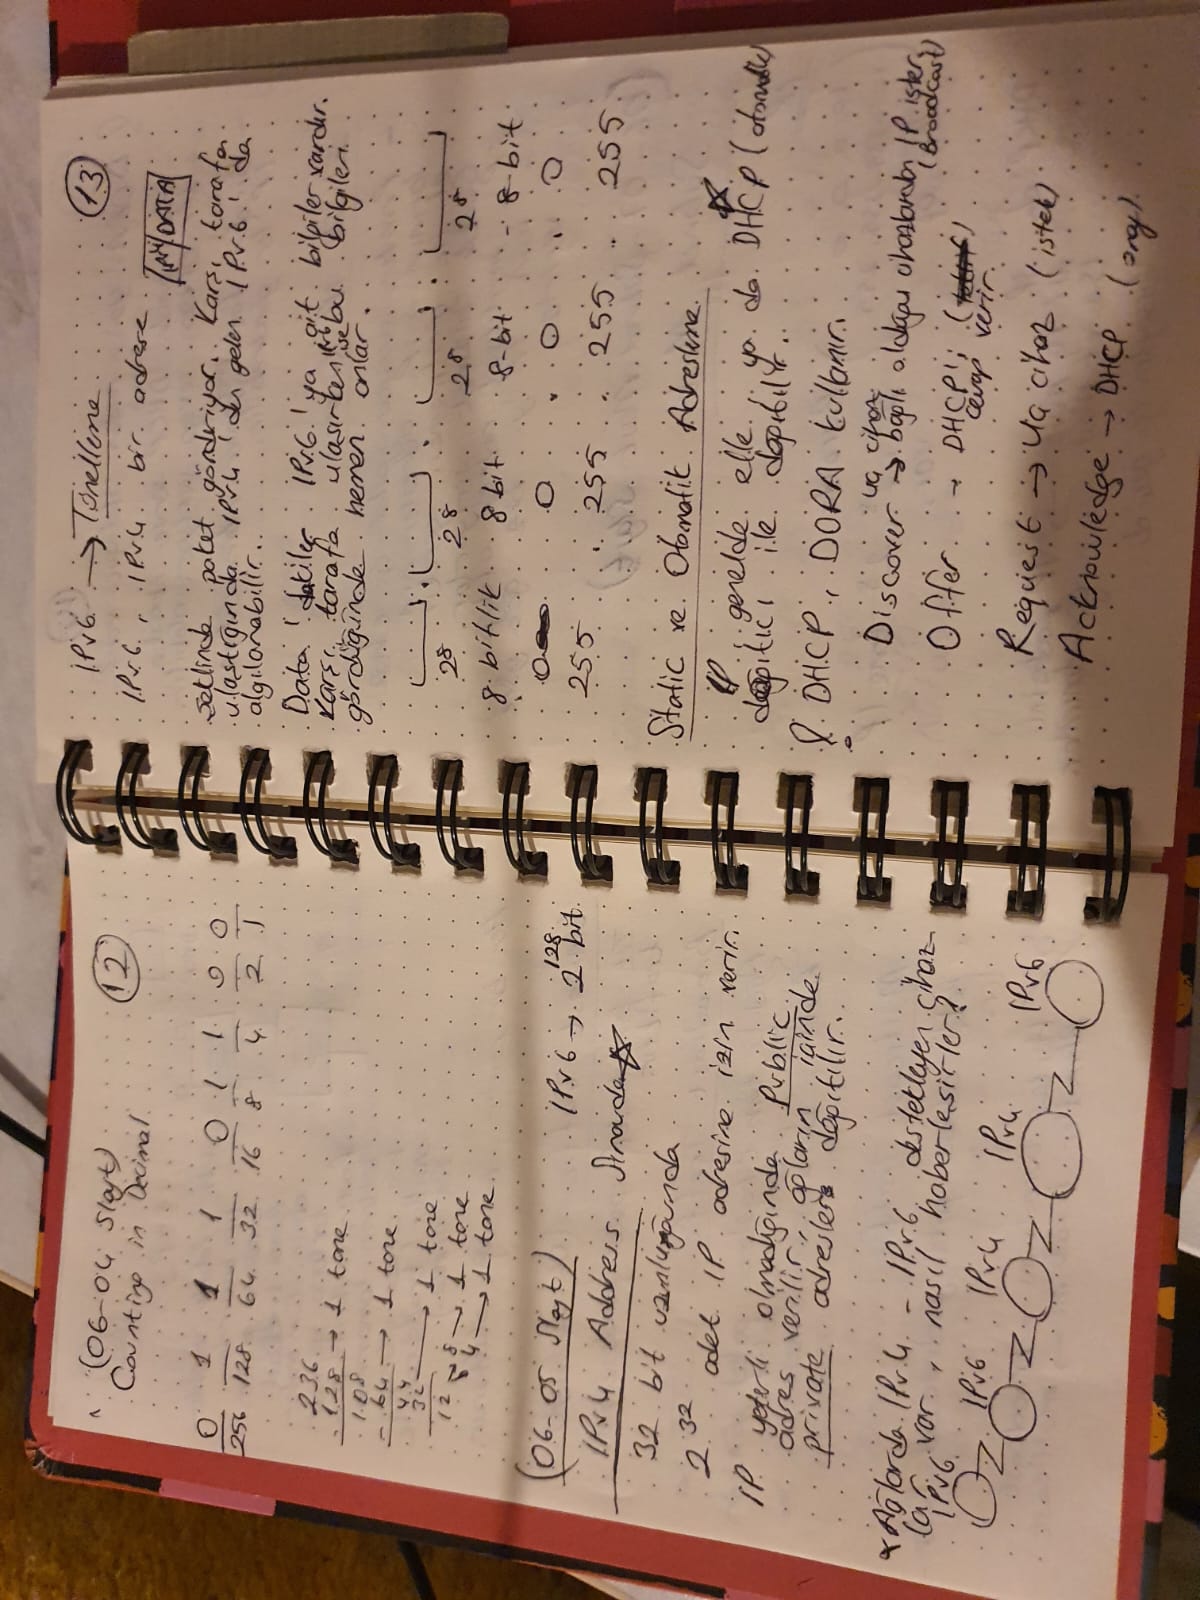 (06-04 Slayt)
12
Counting in Decimal
0 1 1 1 0 1 1 0 0
256 128 64 32 16 8 4 2 1
236
- 128 → 1 tane
108
- 64 → 1 tane
44
32 → 1 tane
12 → 8 → 1 tane
4 → 1 tane
(06-05 Slayt)
IPv6 → 2^128 bit
IPv4 Address Sınavda
32 bit uzunluğunda
2^32 adet IP adresine izin verir.
IP yeterli olmadığında Public
adres verilir, ağların içinde
private adresler dağıtılır.
Ağlarda IPv4 - IPv6 destekleyen cihaz
lar var, nasıl haberleşirler?
IPv6 IPv6 IPv4 IPv4 IPv6
IPv6 → Tünelleme
13
IPv6, IPv4 bir adrese
IPv4 DATA
şeklinde paket gönderiyor. Karşı tarafa
ulaştığında IPv4'den gelen IPv6'da
algılanabilir.
Data'dakiler IPv6'ya ait bilgiler vardır.
Karşı tarafa ulaşırken IPv6 ise bu bilgileri
gördüğünde hemen anlar.
2^8 . 2^8 . 2^8 . 2^8
8 bitlik 8 bit 8-bit - 8-bit
0 0 . 0 . 0
255 . 255 . 255 . 255
Static ve Otomatik Adresleme
IP, genelde elle, ya da DHCP (otomatik)
dağıtıcı ile dağıtılır.
! DHCP, DORA kullanır.
uç cihaz
Discover → bağlı olduğu cihazlardan IP ister.
(Broadcast)
Offer → DHCP'i;
cevap verir.
Request → Uç cihaz (istek)
Acknowledge → DHCP (onay)